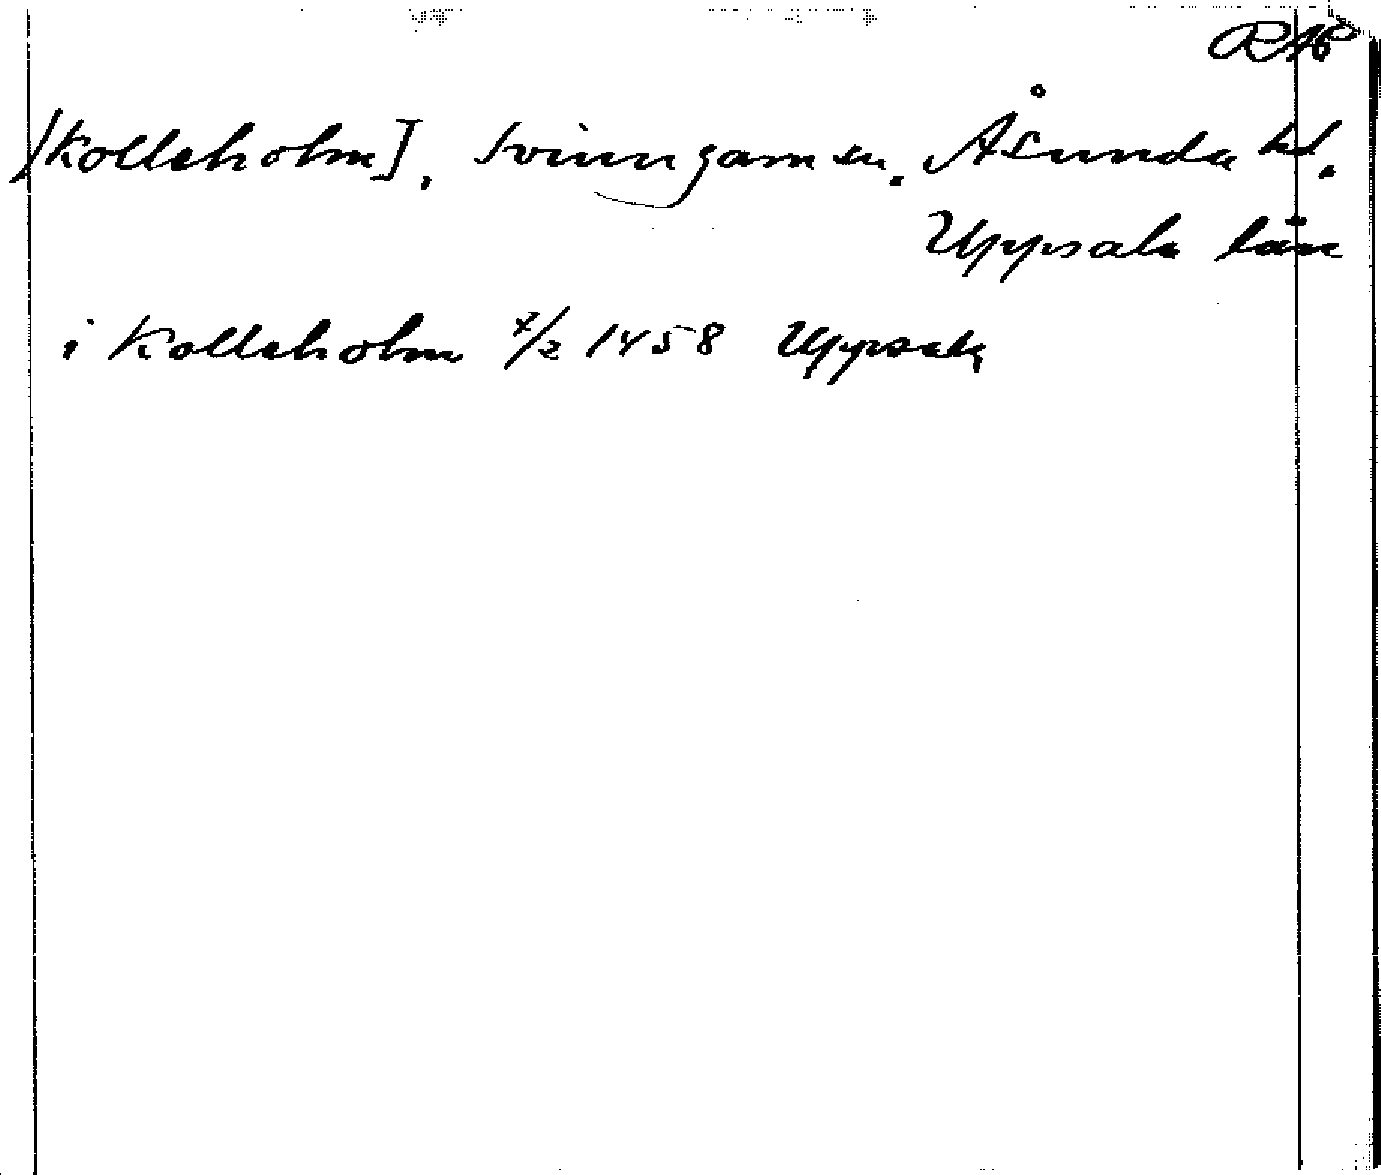 RAP
[Kolleholm], Svinngarn sn. Åsunda hd.
Uppsala län
i Kolleholm 7/2 1458 Uppsala